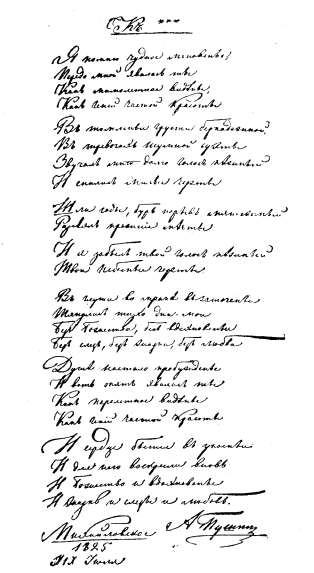 Къ ***
Я помню чудное мгновенье;
Передо мной явилась ты
Какъ мимолетное видѣнье,
Какъ геній чистой красоты
Въ томленьи грусти безнадежной,
Въ тревогахъ шумной суеты
Звучалъ мнѣ долго голосъ нѣжный
И снились милыя черты
Шли годы, бурь порывъ мятежный
Разсѣялъ прежнія мечты
И я забылъ твой голосъ нѣжный
Твои небесныя черты.
Въ глуши во мракѣ заточенья
Тянулись тихо дни мои
Безъ божества, безъ вдохновенья
Безъ слезъ, безъ жизни, безъ любви
Душѣ настало пробужденье
И вотъ опять явилась ты
Какъ мимолетное видѣнье
Какъ геній чистой красоты
И сердце бьется въ упоеньи
И для него воскресли вновь
И божество и вдохновенье
И жизнь и слезы и любовь.
Михайловское А Пушкин
1825
XIX Іюля